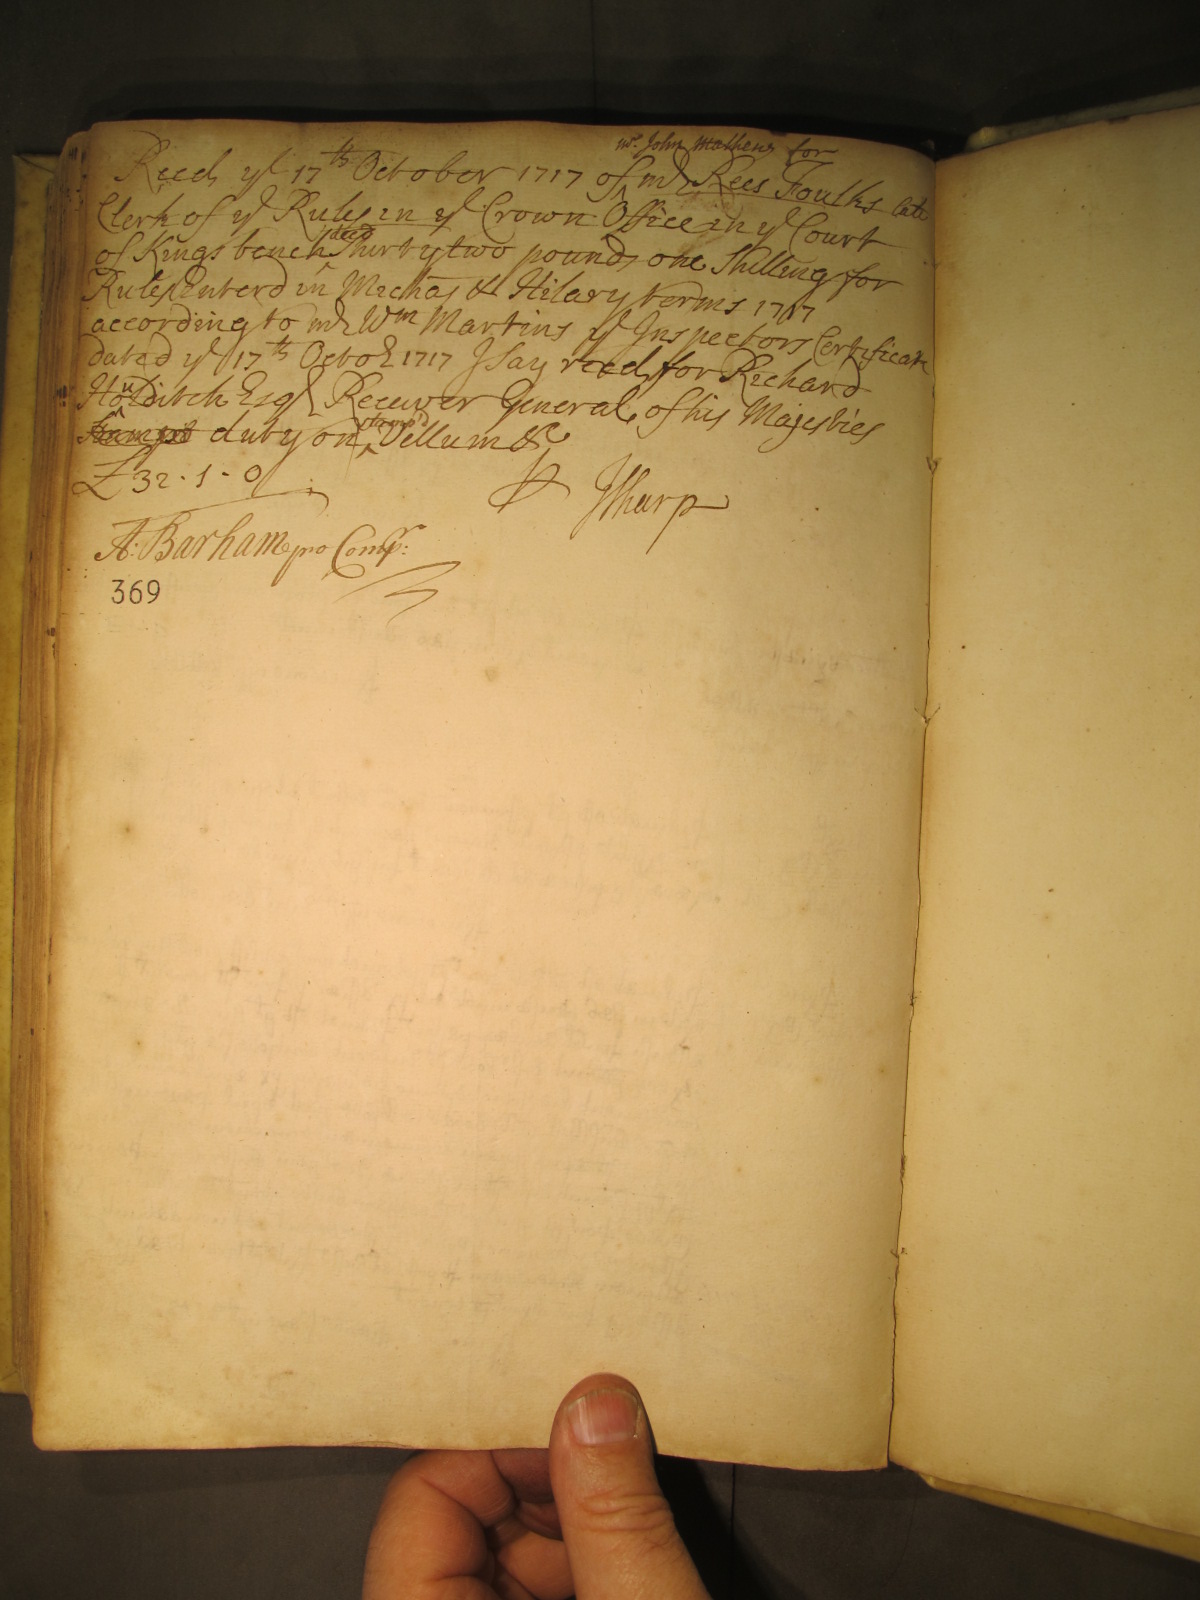 mr. John Mathews for
Recd ye 17th October 1717 of mr Rees Foulks late
Clerk of ye Rules in ye Crown Office in ye Court
of Kings bench decd Thirty two pounds one Shilling for
Rules Enterd in Michas & Hilary terms 1717
according to mr Wm Martins ye Inspectors Certificate
dated ye 17th Octor 1717 I say recd for Richard
Houlditch Esqr Receiver General of his Majesties
Stampt duty on stamp'd Vellum &c
£ 32 . 1 . 0
p JSharp
A: Barham pro Compr:
369